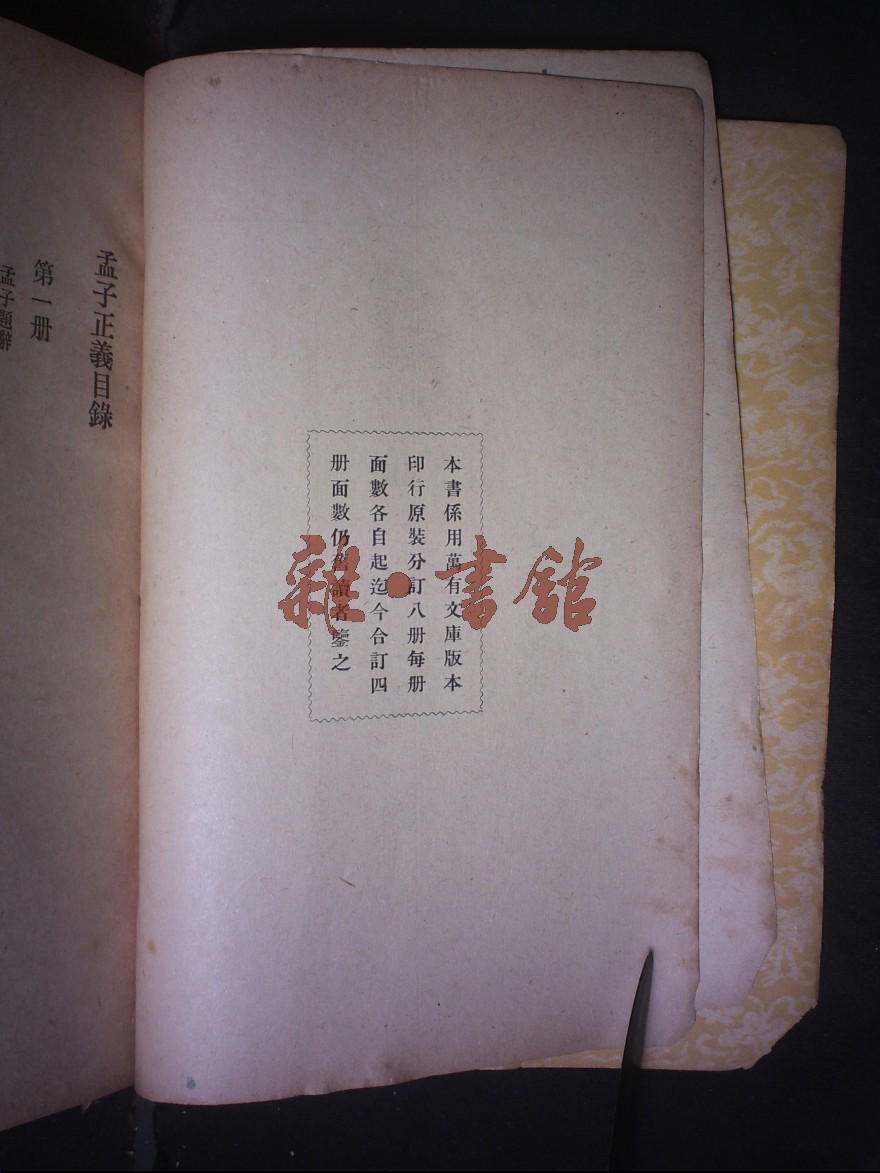 本書係用萬有文庫版本
印行原裝分訂八册每册
面數各自起迄今合訂四
册面數仍舊讀者鑒之
孟子正義目錄
第一册
孟子題辭
雜·書館